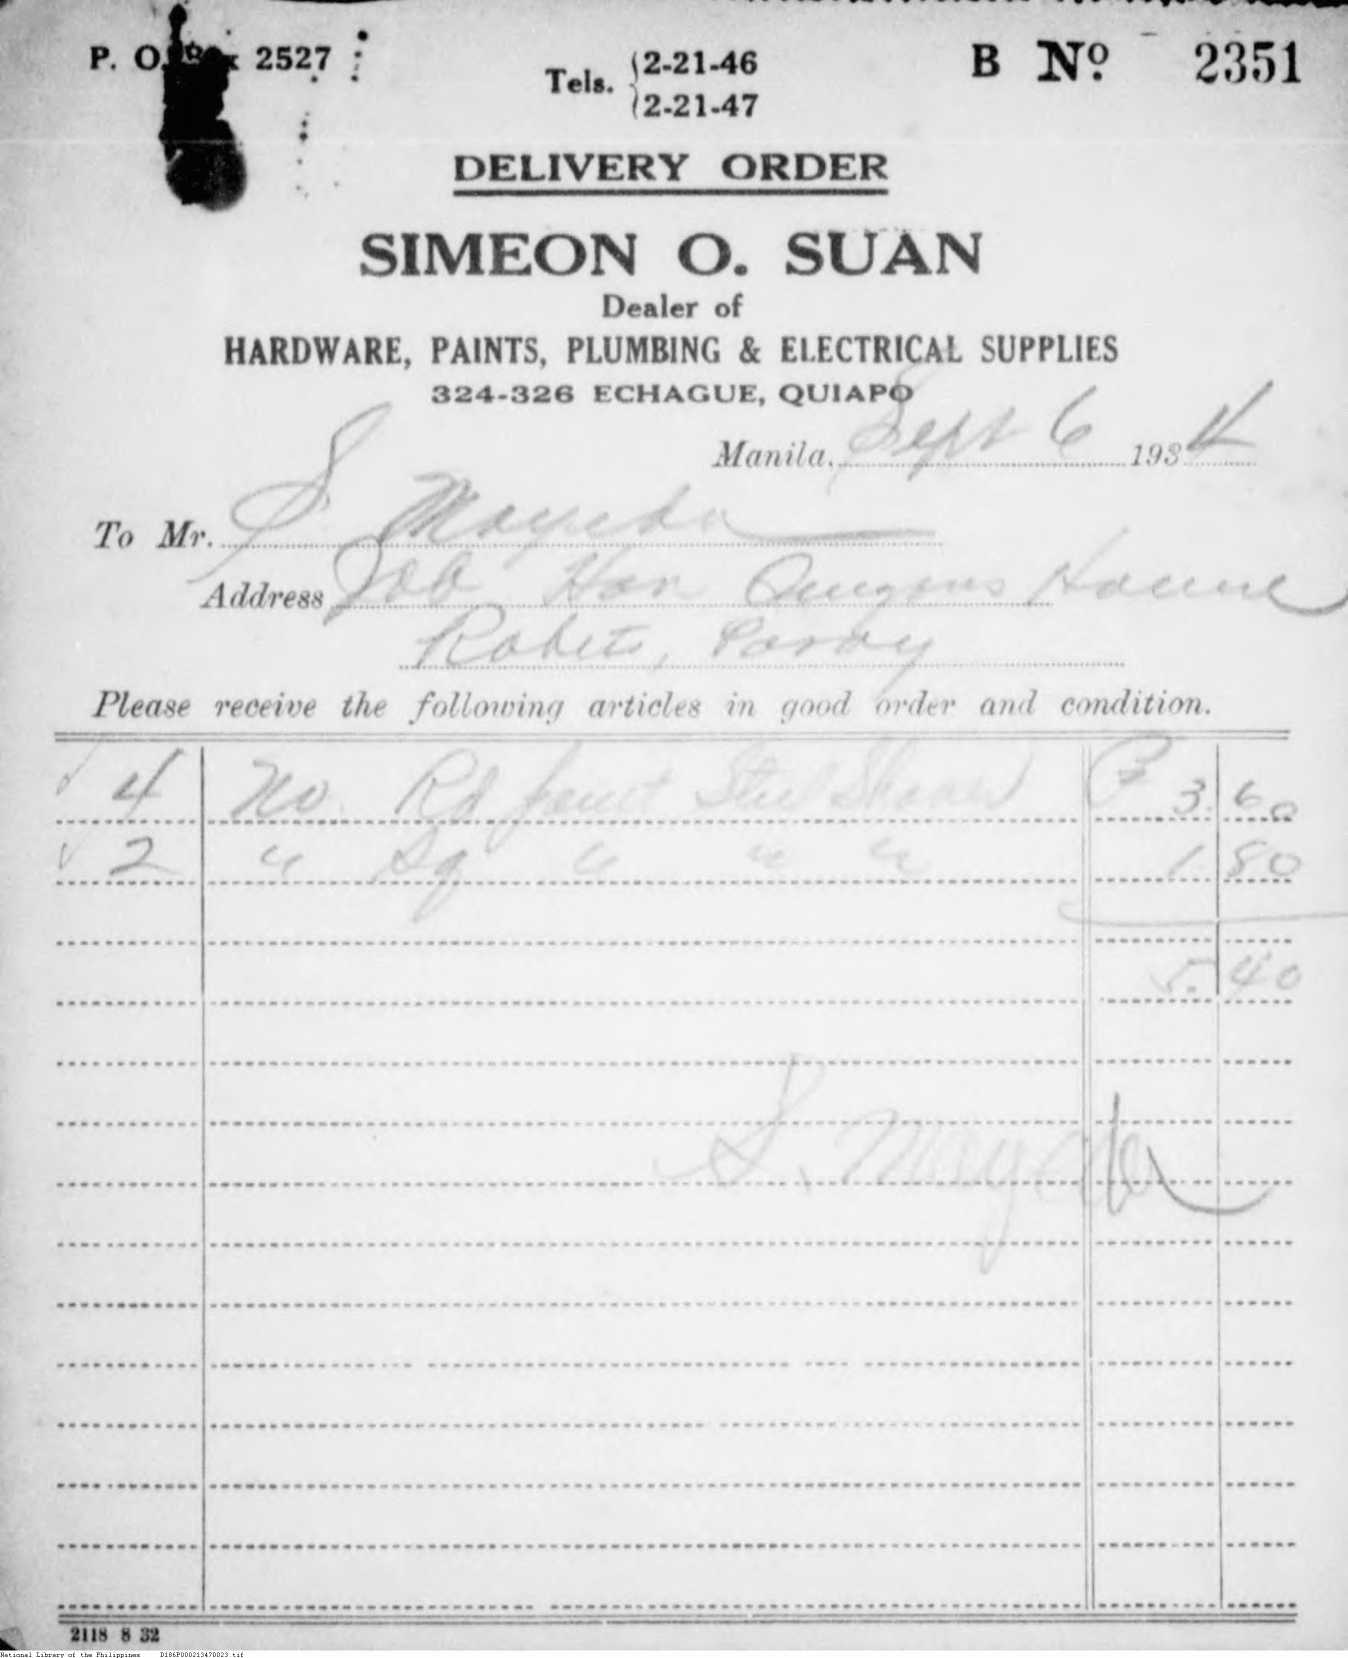 P. O. Box 2527
Tels. 2-21-46
2-21-47
B Nº 2351
DELIVERY ORDER
SIMEON O. SUAN
Dealer of
HARDWARE, PAINTS, PLUMBING & ELECTRICAL SUPPLIES
324-326 ECHAGUE, QUIAPO
Manila, Sept 6 1934
To Mr. S Mayeda
Address Job Hon House
Pasay
Please receive the following articles in good order and condition.
4 No. Rd Steel ₱ 3.60
2 " Sq " " " 1.80
5.40
S. Mayeda
2118 8 32
National Library of the Philippines D186P000213470023.tif